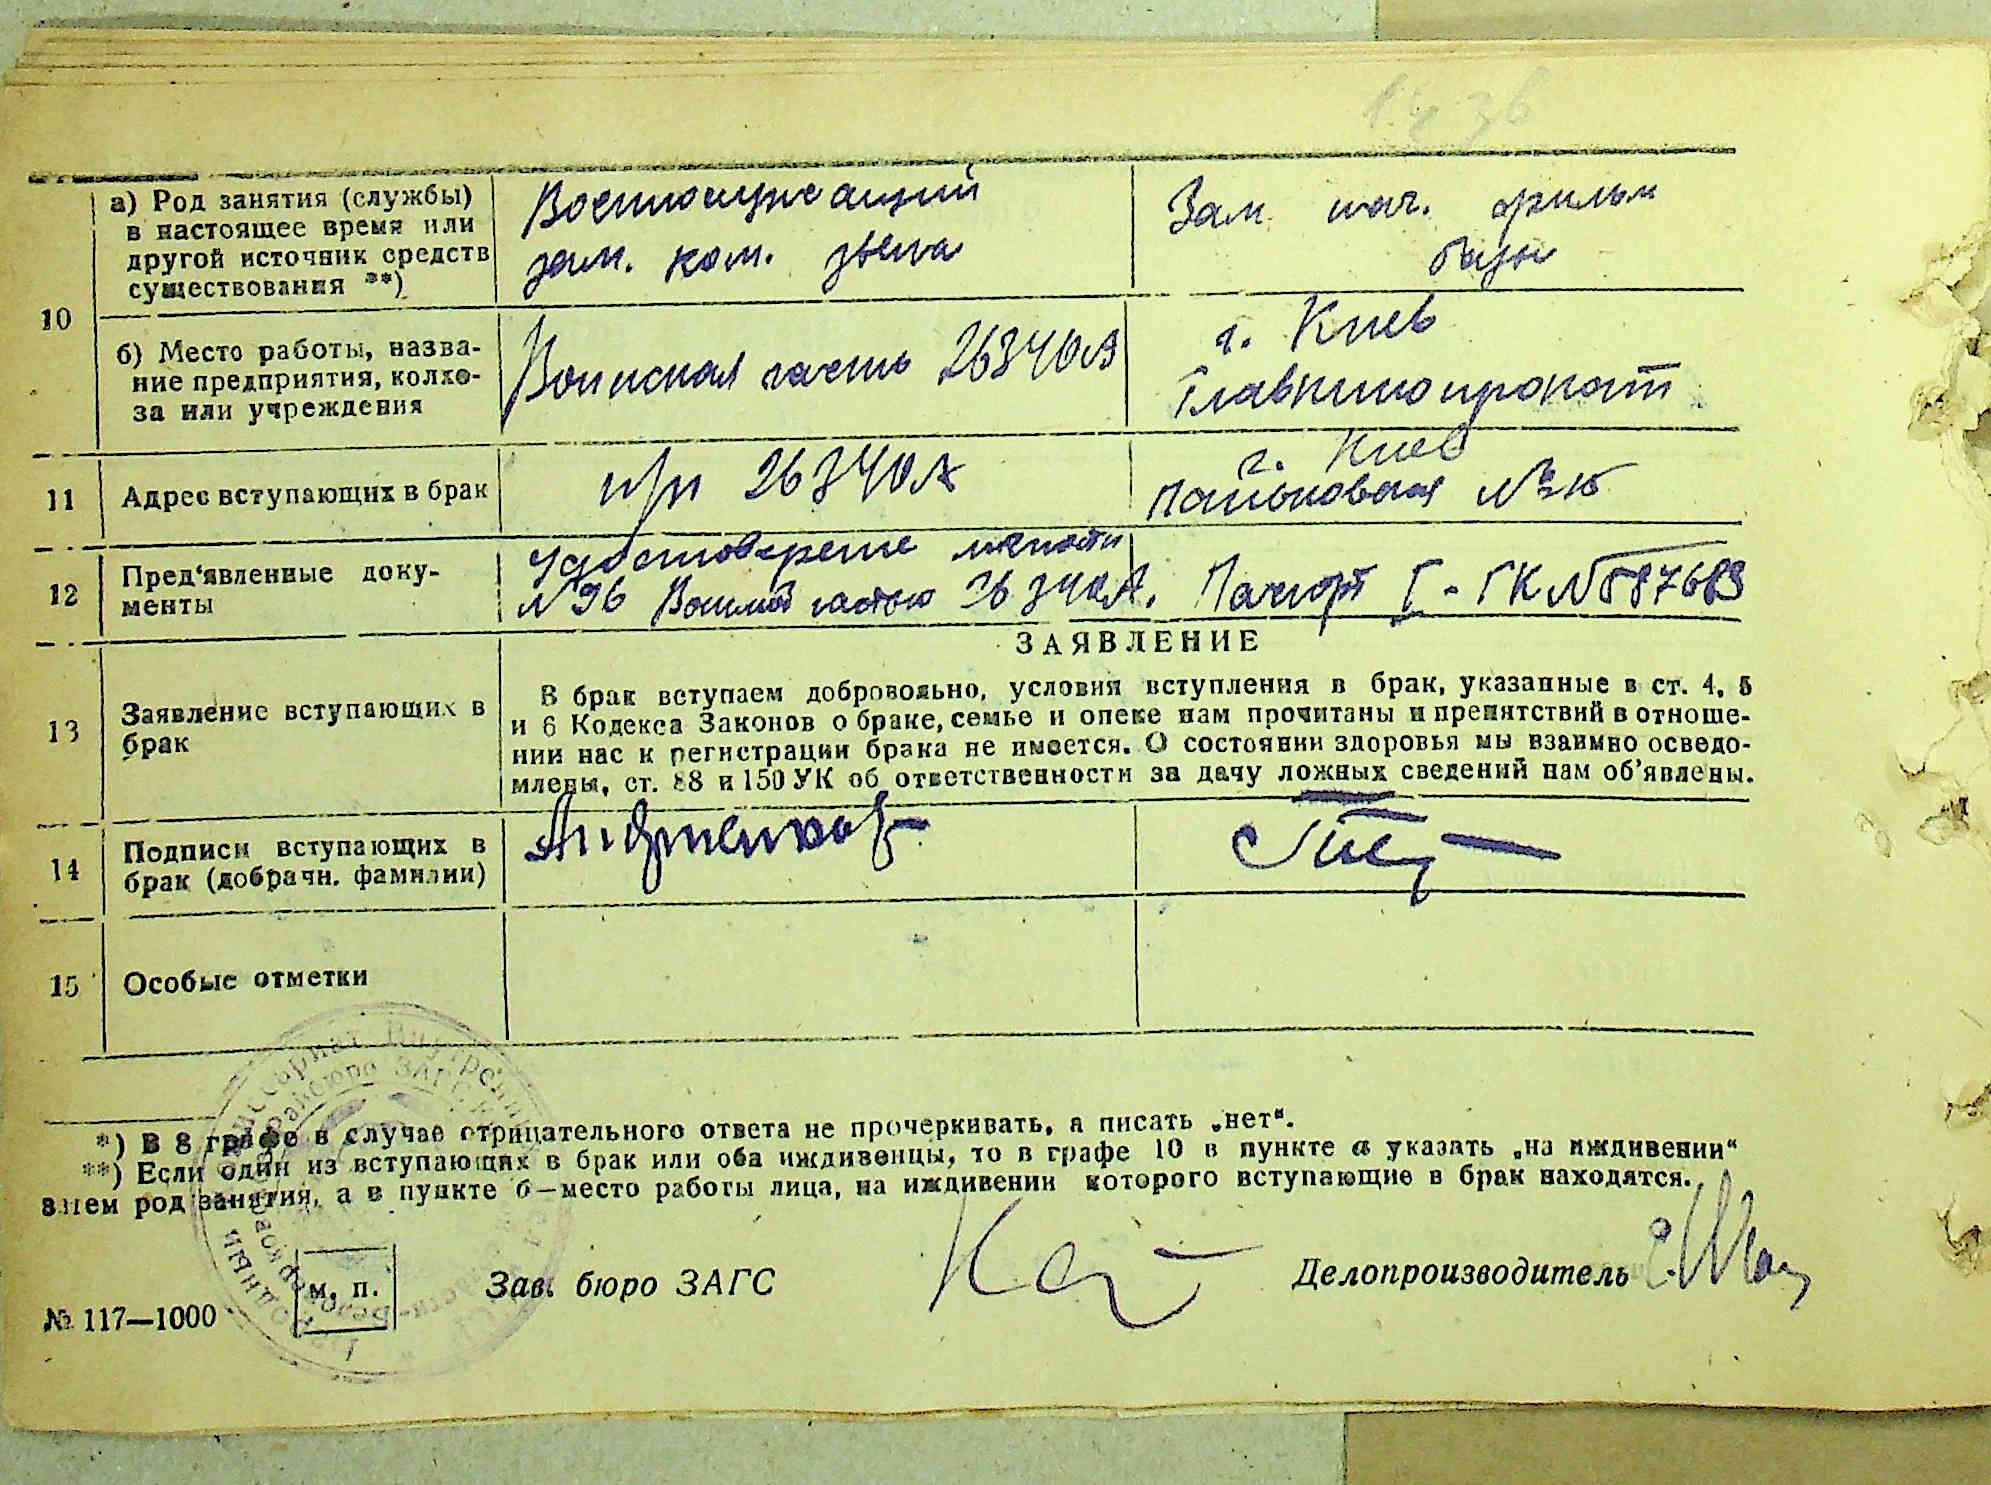 10
а) Род занятия (службы)
в настоящее время или
другой источник средств
существования **)
Военнослужащий
зам. ком. звена
Зам. нач. фильм
базы
б) Место работы, назва-
ние предприятия, колхо-
за или учреждения
Воинская часть 26340А
г. Киев
Главкинопрокат
11
Адрес вступающих в брак
п/п 26340А
г. Киев
№
12
Пред'явленные доку-
менты
Удостоверение личности
№ 96 Воинской частью 26340А.
Паспорт
13
Заявление вступающих в
брак
ЗАЯВЛЕНИЕ
В брак вступаем добровольно, условия вступления в брак, указанные в ст. 4, 5
и 6 Кодекса Законов о браке, семье и опеке нам прочитаны и препятствий в отноше-
нии нас к регистрации брака не имеется. О состоянии здоровья мы взаимно осведо-
млены, ст. 88 и 150 УК об ответственности за дачу ложных сведений нам об'явлены.
14
Подписи вступающих в
брак (добрачн. фамилии)
15
Особые отметки
*) В 8 графе в случае отрицательного ответа не прочеркивать, а писать „нет“.
**) Если один из вступающих в брак или оба иждивенцы, то в графе 10 в пункте а указать „на иждивении“
в чем род занятия, а в пункте б—место работы лица, на иждивении которого вступающие в брак находятся.
м. п.
Зав. бюро ЗАГС
Делопроизводитель
№ 117—1000